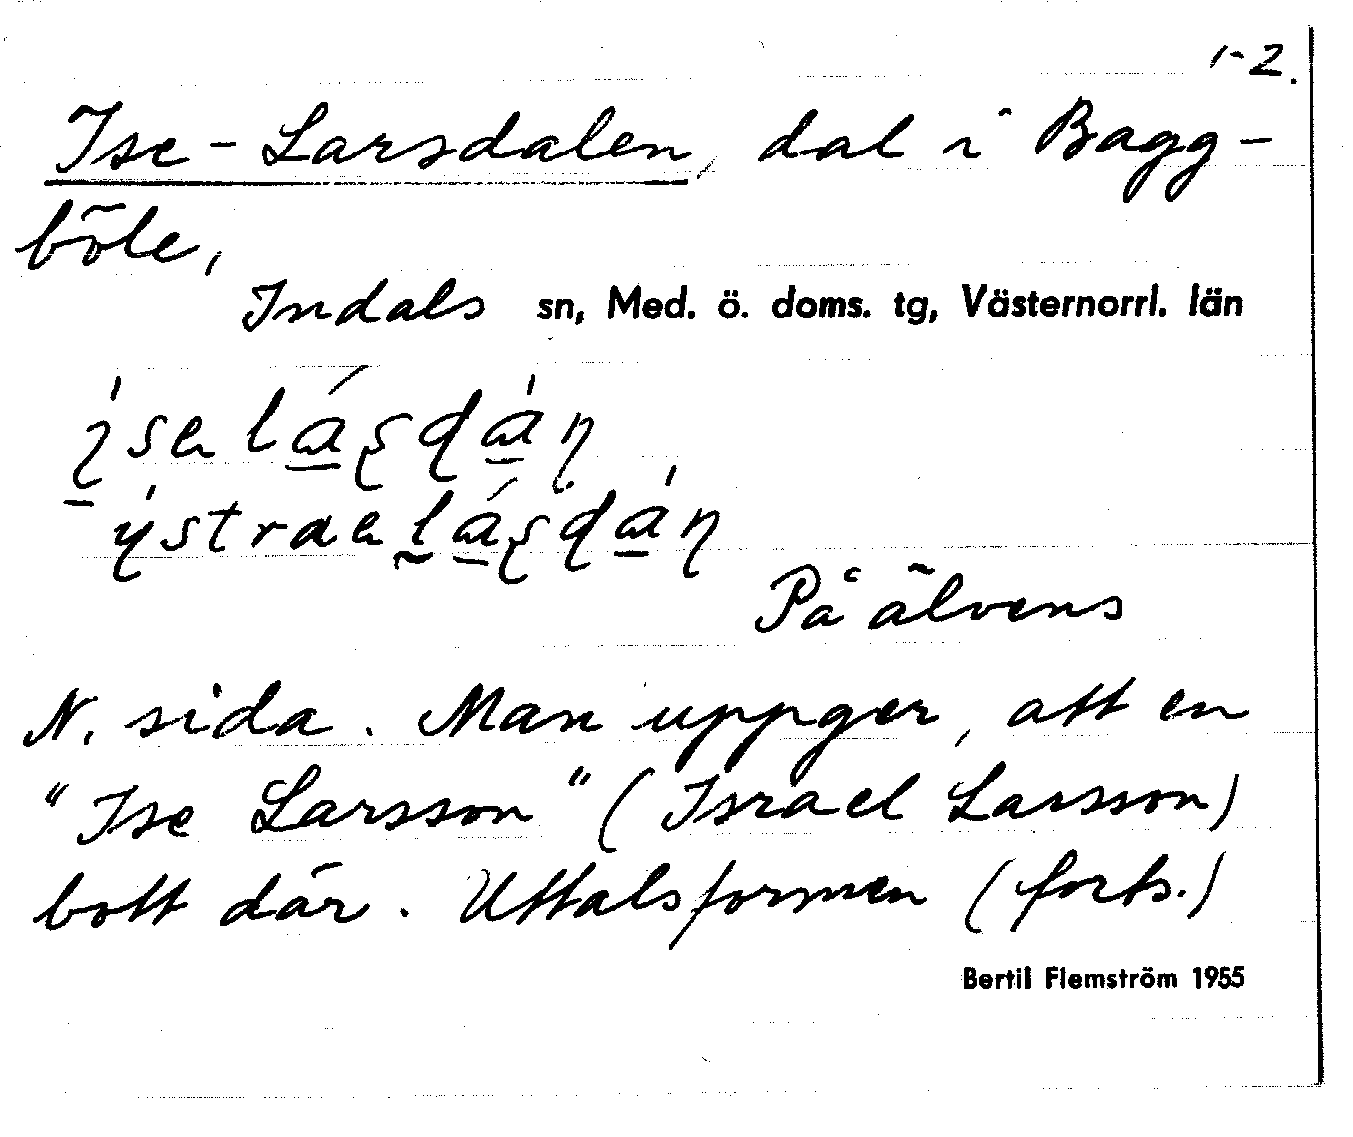 1-2.
Ise-Larsdalen, dal i Bagg-
böle,
Indals sn, Med. ö. doms. tg, Västernorrl. län
På älvens
N. sida. Man uppger, att en
"Ise Larsson" (Israel Larsson)
bott där. Uttalsformen (forts.)
Bertil Flemström 1955